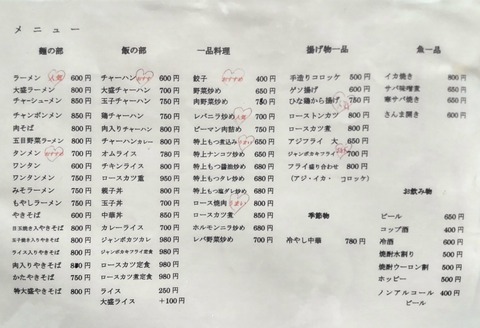 メニュー
麺の部
ラーメン 人気 600円
大盛ラーメン 700円
チャーシューメン 850円
チャンポンメン 800円
肉そば 800円
五目野菜ラーメン 800円
タンメン おすすめ 700円
ワンタン 600円
ワンタンメン 750円
みそラーメン 750円
もやしラーメン 750円
やきそば 600円
目玉焼き入りやきそば 800円
玉子麺き入りやきそば 800円
ライス入りやきそば 800円
肉入りやきそば 800円
かたやきそば 750円
特大盛やきそば 800円
飯の部
チャーハン おすすめ 600円
大盛チャーハン 700円
玉子チャーハン 700円
鶏チャーハン 750円
肉入りチャーハン 800円
チャーハンカレー 800円
オムライス 750円
チキンライス 850円
ロースカツ重 950円
親子丼 800円
玉子丼 700円
中華丼 850円
カレーライス 700円
ジャンボカツカレ 980円
ジャンボカキフライ定食 980円
ロースカツ定食 980円
ロースカツ煮定食 980円
ライス 250円
大盛ライス +100円
一品料理
餃子 400円
野菜炒め 650円
肉野菜炒め 750円
レバニラ炒め 人気 700円
ピーマン肉詰め 700円
特上もつ煮込み うまい! 650円
特上ナンコツ炒め 680円
特上もつ醤油炒め 680円
特上もつタレ炒め 680円
特上もつ塩ダレ炒め 680円
ロース焼肉 うまい! 850円
ロースカツ煮 850円
ホルモンニラ炒め 680円
レバ野菜炒め 700円
揚げ物一品
手造りコロッケ 500円
ゲソ揚げ 600円
ひな鶏から揚げ 750円
ローストンカツ 800円
ロースカツ煮 800円
アジフライ 大 650円
ジャンボカキフライ 700円
フライ盛り合わせ 800円
(アジ・イカ・コロッケ)
季節物
冷やし中華 780円
魚一品
イカ焼き 800円
サバ味噌煮 650円
寒サバ焼き 650円
さんま開き 600円
お飲み物
ビール 650円
コップ酒 400円
冷酒 600円
焼酎水割り 500円
焼酎ウーロン割 500円
ホッピー 500円
ノンアルコール 400円
ビール